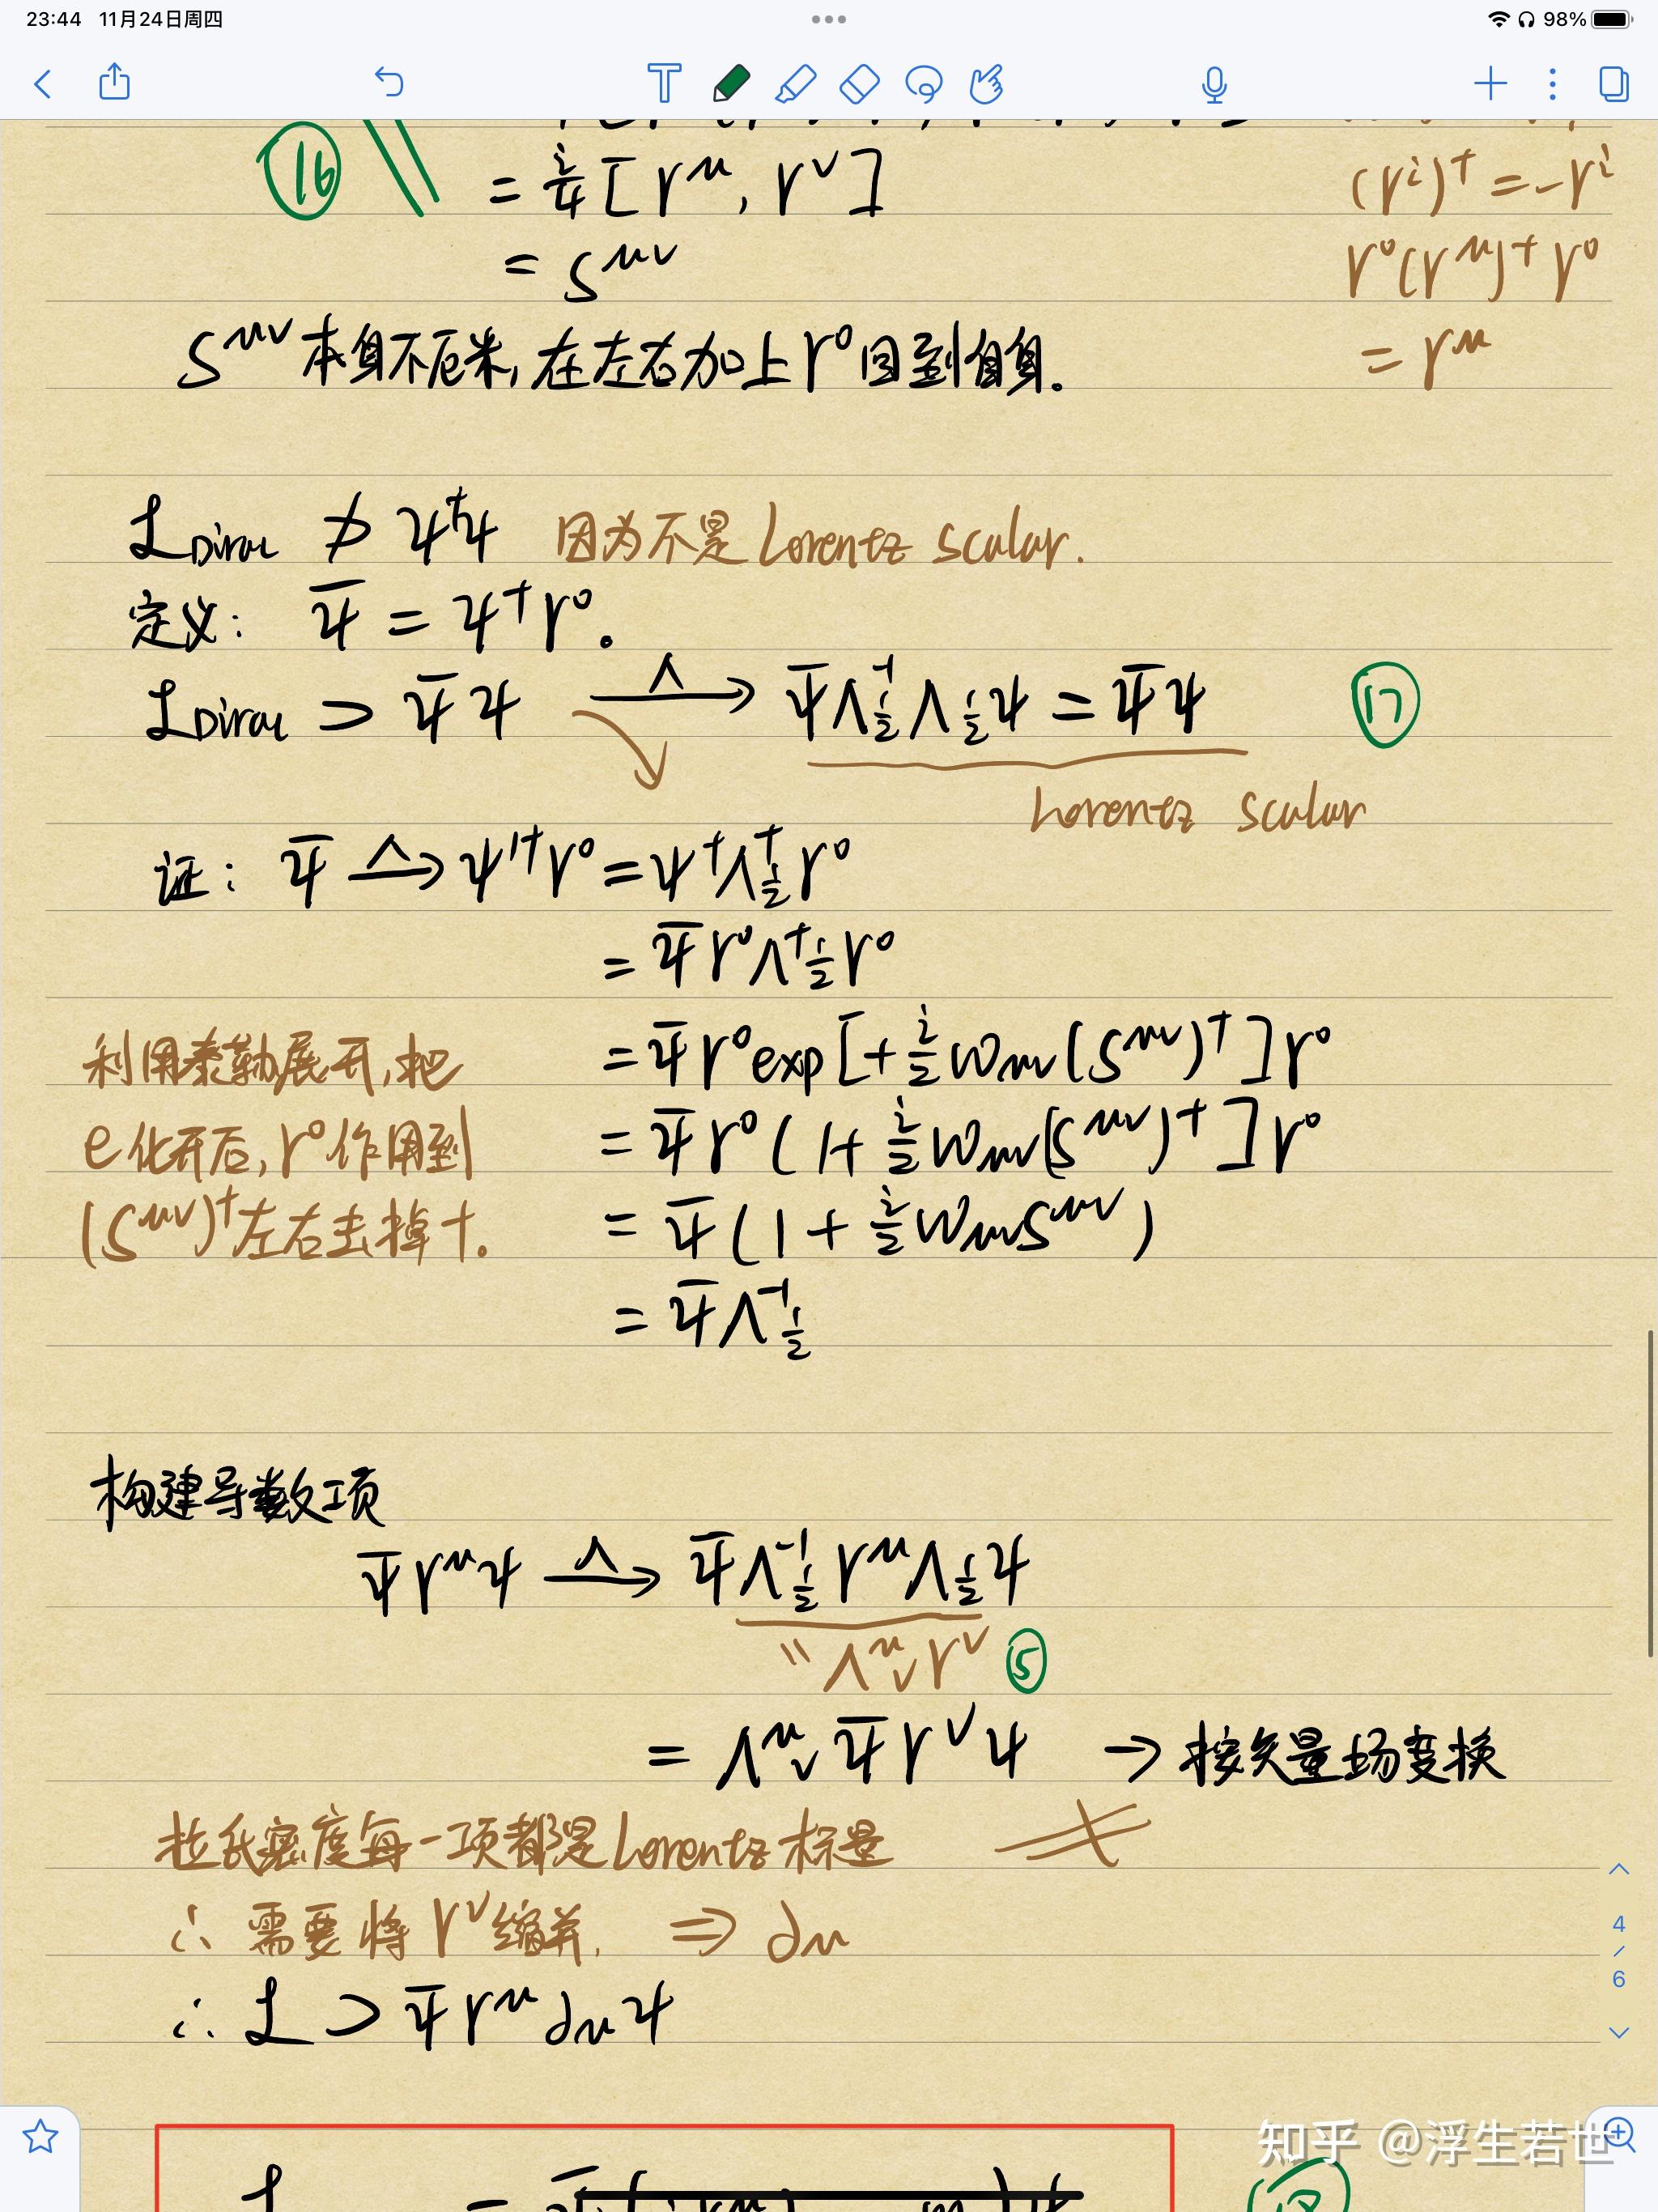 23:44 11月24日周四
98%
⑯
= i/4 [γ^μ, γ^ν]
(γ^i)† = -γ^i
= S^{μν}
γ^0(γ^μ)†γ^0
S^{μν}本身不厄米,在左右加上γ^0回到自身.
= γ^μ
ℒ_Dirac ⊅ ψ†ψ 因为不是Lorentz scalar.
定义: ψ̄ = ψ†γ^0.
ℒ_Dirac ⊃ ψ̄ψ —Λ→ ψ̄Λ_{1/2}^{-1}Λ_{1/2}ψ = ψ̄ψ ⑰
Lorentz scalar
证: ψ̄ —Λ→ ψ'†γ^0 = ψ†Λ_{1/2}†γ^0
= ψ̄γ^0Λ†_{1/2}γ^0
利用泰勒展开,把
= ψ̄γ^0exp[+i/2 ω_{μν}(S^{μν})†]γ^0
e化开后,γ^0作用到
= ψ̄γ^0(1+i/2 ω_{μν}(S^{μν})†]γ^0
(S^{μν})†左右去掉†.
= ψ̄(1+i/2 ω_{μν}S^{μν})
= ψ̄Λ^{-1}_{1/2}
构建导数项
ψ̄γ^μψ —Λ→ ψ̄Λ^{-1}_{1/2}γ^μΛ_{1/2}ψ
"Λ^μ_νγ^ν ⑤
= Λ^μ_ν ψ̄γ^νψ → 按矢量场变换
拉氏密度每一项都是Lorentz标量
∴ 需要将γ^ν缩并, ⇒ ∂_μ
4
/
6
∴ ℒ ⊃ ψ̄γ^μ∂_μψ
知乎 @浮生若世